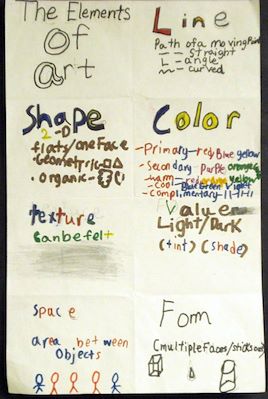 The Elements
Of
art
Line
Path of a moving Point
straight
angle
curved
Shape
2-D
flat/one Face
Geometric
organic
Color
Primary-red Blue yellow
Secondary Purple orange green
warm-red orange yellow
Cool Blue Green Violet
Complimentary
texture
Can be felt
Value
Light/Dark
(tint) (shade)
Space
area between
Objects
Fom
(multiple Faces/sticks out)